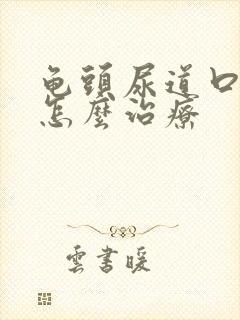 龟頭尿道口
怎麼治療
雲書暖